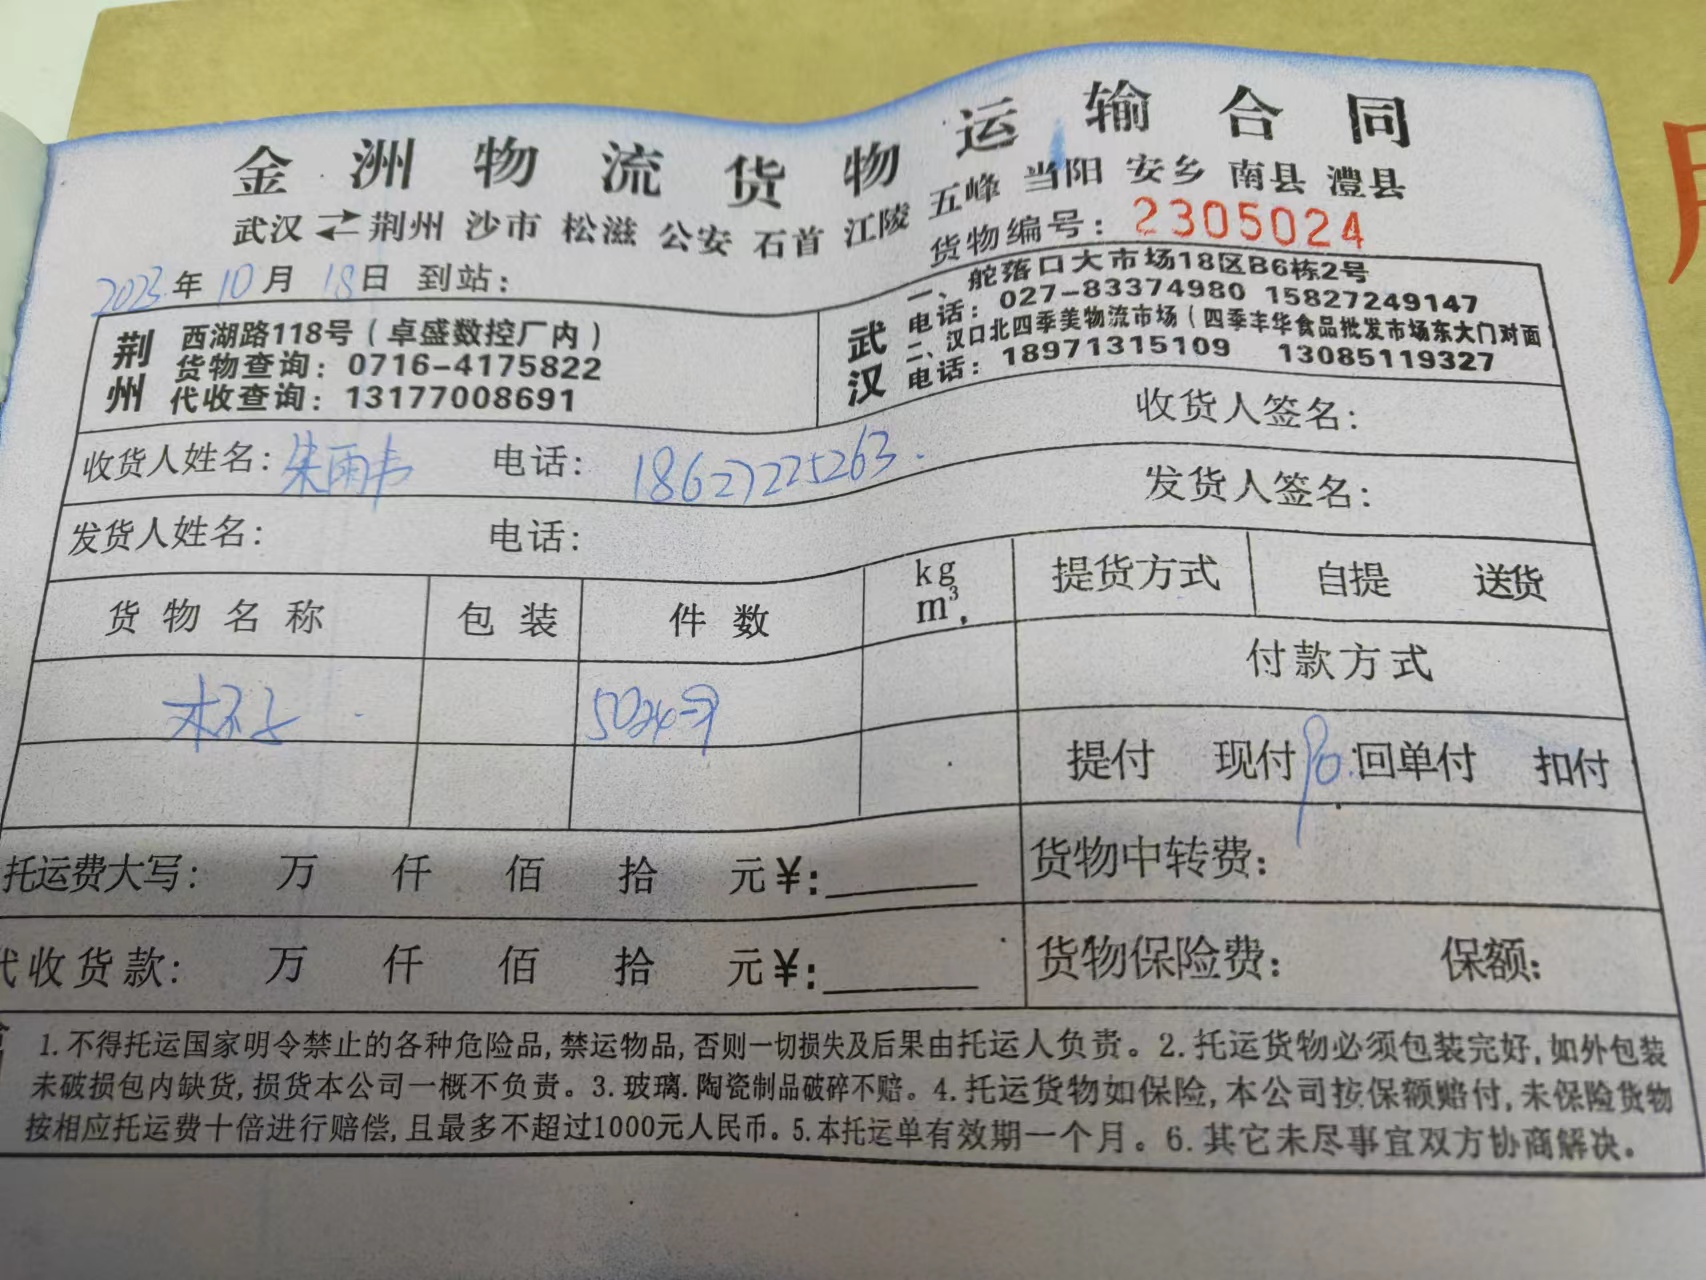 金洲物流货物运输合同
武汉⇄荆州 沙市 松滋 公安 石首 江陵 五峰 当阳 安乡 南县 澧县
货物编号：2305024
2023年10月18日 到站：
荆州
西湖路118号（卓盛数控厂内）
货物查询：0716-4175822
代收查询：13177008691
武汉
一、舵落口大市场18区B6栋2号
电话：027-83374980 15827249147
二、汉口北四季美物流市场（四季丰华食品批发市场东大门对面
电话：18971315109 13085119327
收货人姓名：朱雨韦 电话：18627225263 收货人签名：
发货人姓名： 电话： 发货人签名：
货物名称 包装 件数 kg m³. 提货方式 自提 送货
付款方式
5024
提付 现付90 回单付 扣付
托运费大写： 万 仟 佰 拾 元¥: 货物中转费：
代收货款： 万 仟 佰 拾 元¥: 货物保险费： 保额：
1.不得托运国家明令禁止的各种危险品,禁运物品,否则一切损失及后果由托运人负责。2.托运货物必须包装完好,如外包装
未破损包内缺货,损货本公司一概不负责。3.玻璃.陶瓷制品破碎不赔。4.托运货物如保险,本公司按保额赔付,未保险货物
按相应托运费十倍进行赔偿,且最多不超过1000元人民币。5.本托运单有效期一个月。6.其它未尽事宜双方协商解决。